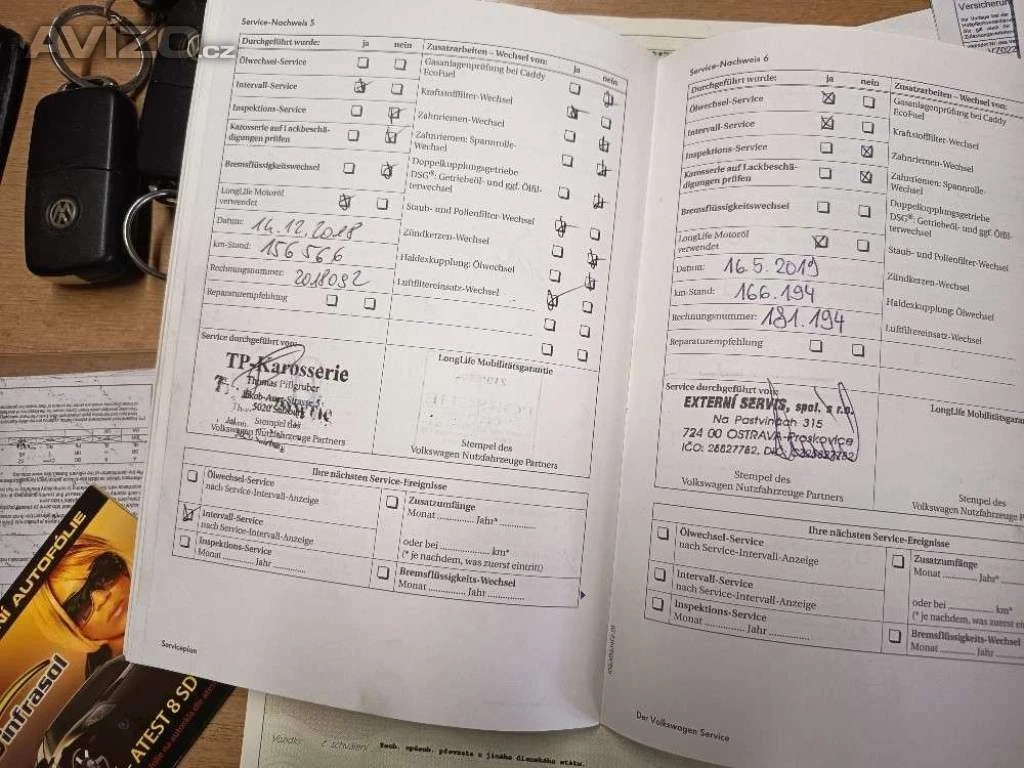 AVIZO.cz
Service-Nachweis 5
Durchgeführt wurde: ja nein
Ölwechsel-Service
Intervall-Service
Inspektions-Service
Karosserie auf Lackbeschä-
digungen prüfen
Bremsflüssigkeitswechsel
LongLife Motoröl
verwendet
Datum: 14.12.2018
km-Stand: 156566
Rechnungsnummer: 2018092
Reparaturempfehlung
Zusatzarbeiten – Wechsel von: ja nein
Gasanlagenprüfung bei Caddy
EcoFuel
Kraftstofffilter-Wechsel
Zahnriemen-Wechsel
Zahnriemen: Spannrolle-
Wechsel
Doppelkupplungsgetriebe
DSG®: Getriebeöl- und ggf. Ölfil-
terwechsel
Staub- und Pollenfilter-Wechsel
Zündkerzen-Wechsel
Haldexkupplung: Ölwechsel
Luftfiltereinsatz-Wechsel
Service durchgeführt von:
TP-Karosserie
Thomas Pißgruber
Stempel des
Volkswagen Nutzfahrzeuge Partners
LongLife Mobilitätsgarantie
Stempel des
Volkswagen Nutzfahrzeuge Partners
Ihre nächsten Service-Ereignisse
Ölwechsel-Service
nach Service-Intervall-Anzeige
Intervall-Service
nach Service-Intervall-Anzeige
Inspektions-Service
Monat ............ Jahr ............
Zusatzumfänge
Monat ............ Jahr* ............
oder bei ............ km*
(* je nachdem, was zuerst eintritt)
Bremsflüssigkeits-Wechsel
Monat ............ Jahr ............
Serviceplan
Service-Nachweis 6
Durchgeführt wurde: ja nein
Ölwechsel-Service
Intervall-Service
Inspektions-Service
Karosserie auf Lackbeschä-
digungen prüfen
Bremsflüssigkeitswechsel
LongLife Motoröl
verwendet
Datum: 16.5.2019
km-Stand: 166.194
Rechnungsnummer: 181.194
Reparaturempfehlung
Zusatzarbeiten – Wechsel von:
Gasanlagenprüfung bei Caddy
EcoFuel
Kraftstofffilter-Wechsel
Zahnriemen-Wechsel
Zahnriemen: Spannrolle-
Wechsel
Doppelkupplungsgetriebe
DSG®: Getriebeöl- und ggf. Öl
terwechsel
Staub- und Pollenfilter-Wechsel
Zündkerzen-Wechsel
Haldexkupplung: Ölwechsel
Luftfiltereinsatz-Wechsel
Service durchgeführt von:
EXTERNÍ SERVIS, spol. s r.o.
Na Pastvinách 315
724 00 OSTRAVA-Proskovice
IČO: 26827782,
Stempel des
Volkswagen Nutzfahrzeuge Partners
LongLife Mobilitätsgara
Stempel des
Volkswagen Nutzfahrzeuge
Ihre nächsten Service-Ereignisse
Ölwechsel-Service
nach Service-Intervall-Anzeige
Intervall-Service
nach Service-Intervall-Anzeige
Inspektions-Service
Monat ............ Jahr ............
Zusatzumfänge
Monat ............ Jahr* ............
oder bei ............ km*
(* je nachdem, was zuerst
Bremsflüssigkeits-Wechsel
Monat ............ Jahr
Der Volkswagen Service
Versicherung
NÍ AUTOFÓLIE
infrasol
ATEST 8 SD
Vozidlo
č. schválení